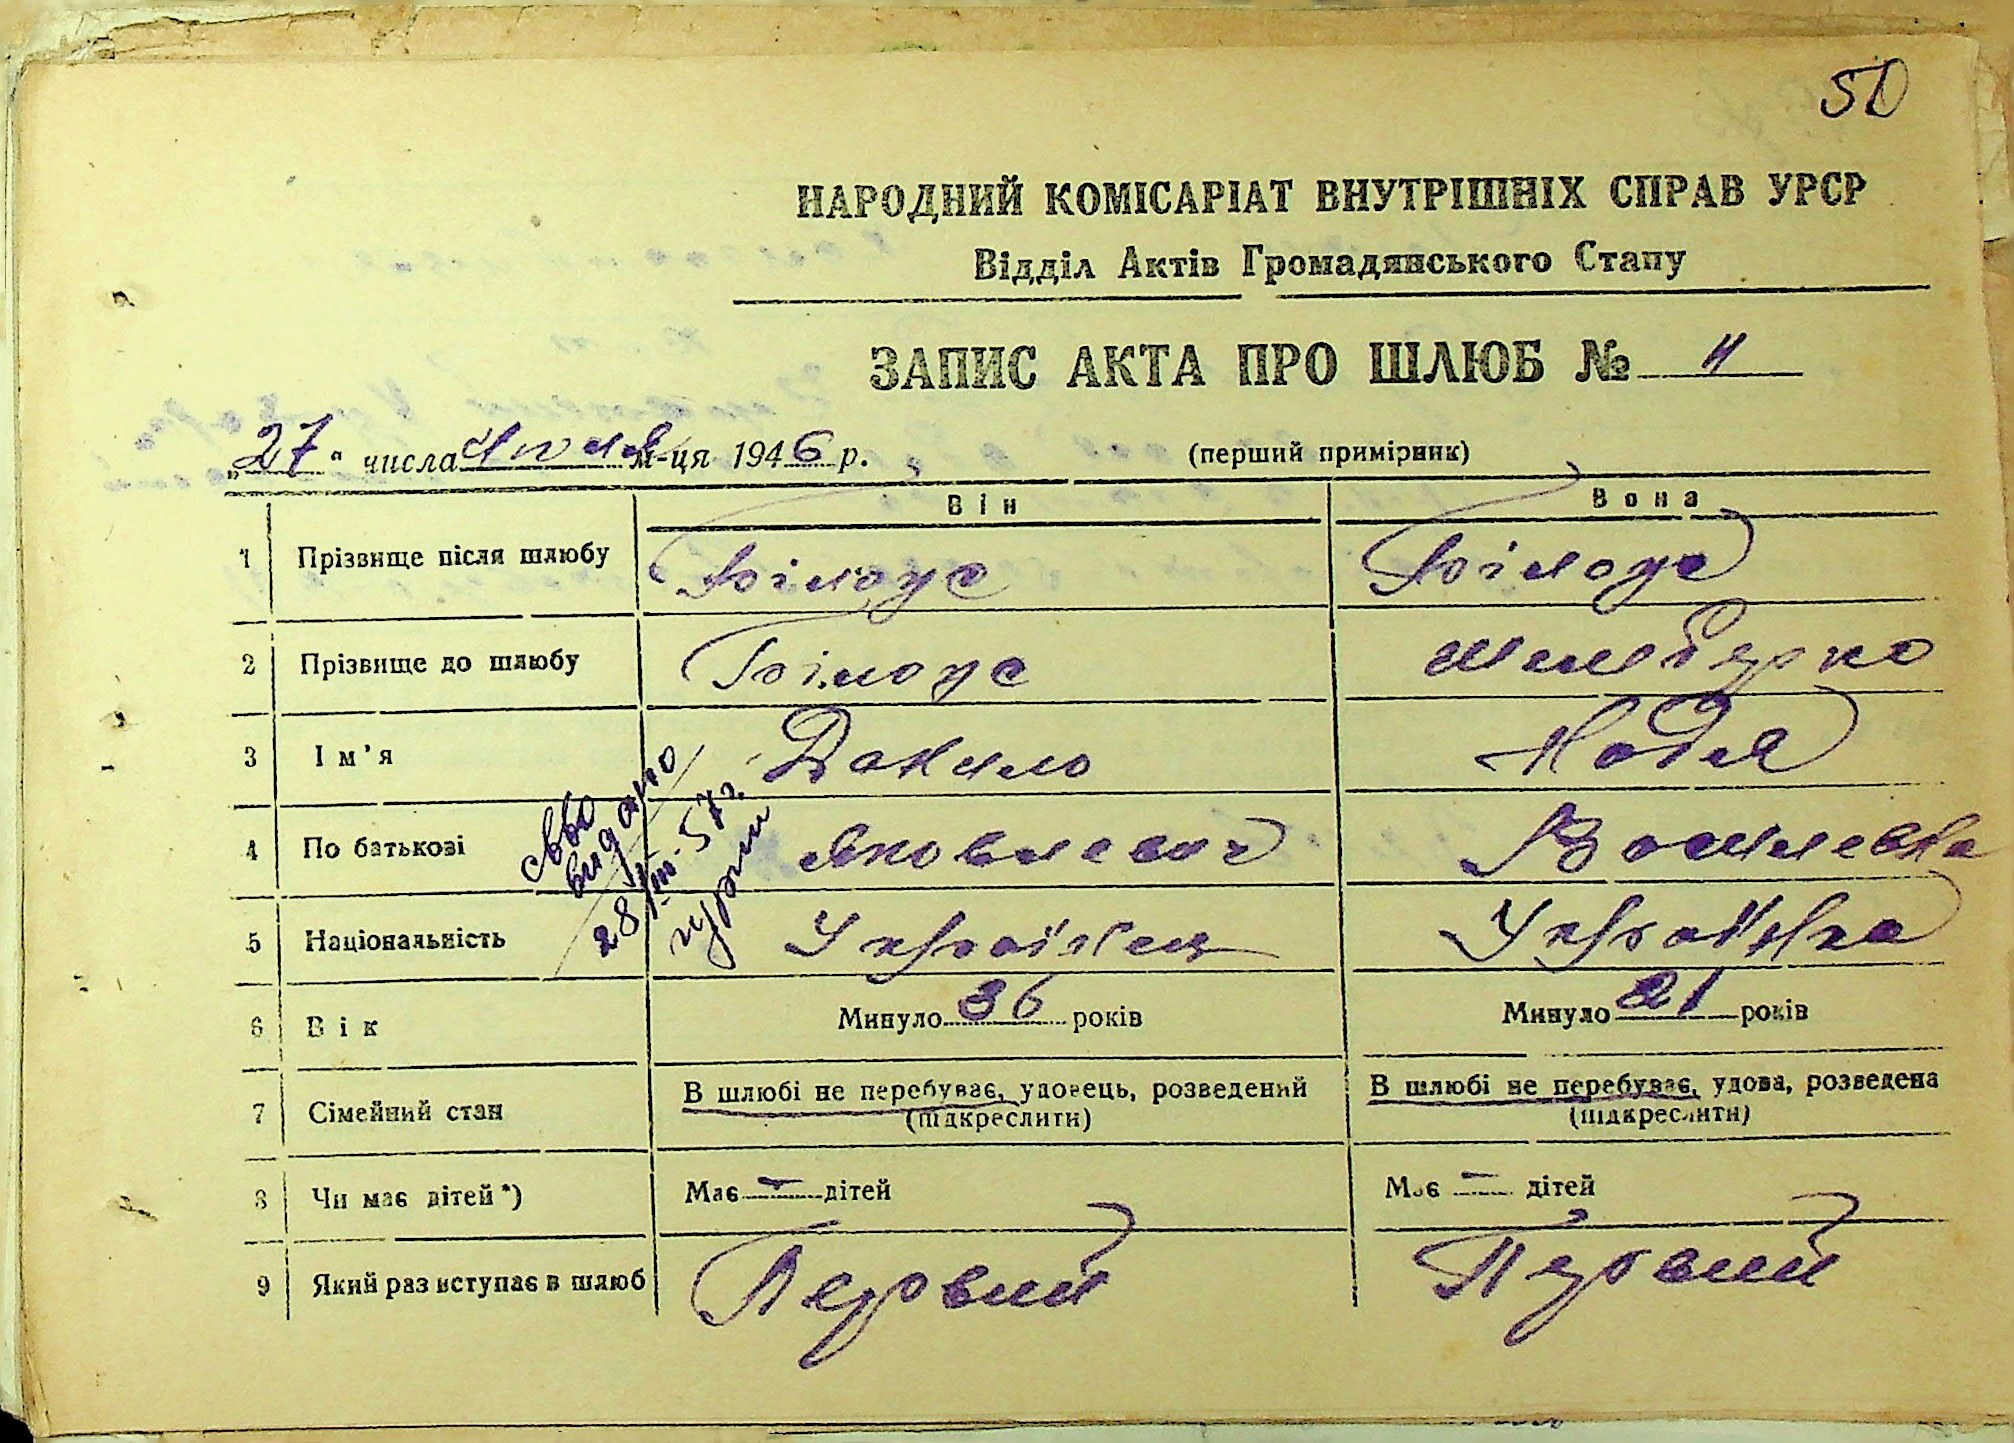 50
НАРОДНИЙ КОМІСАРІАТ ВНУТРІШНІХ СПРАВ УРСР
Відділ Актів Громадянського Стану
ЗАПИС АКТА ПРО ШЛЮБ № 11
„27“ числа Июля м-ця 1946 р. (перший примірник)
Він Вона
1 Прізвище після шлюбу Білоус Білоус
2 Прізвище до шлюбу Білоус
3 Ім'я Данило Надя
4 По батькові Яковлевич Василевна
5 Національність Українец Українка
6 Вік Минуло 36 років Минуло 21 років
7 Сімейний стан В шлюбі не перебуває, удовець, розведений В шлюбі не перебуває, удова, розведена
(підкреслити) (підкреслити)
8 Чи має дітей*) Має — дітей Має — дітей
9 Який раз вступає в шлюб Первий Первий
видано
28/III-57 г.